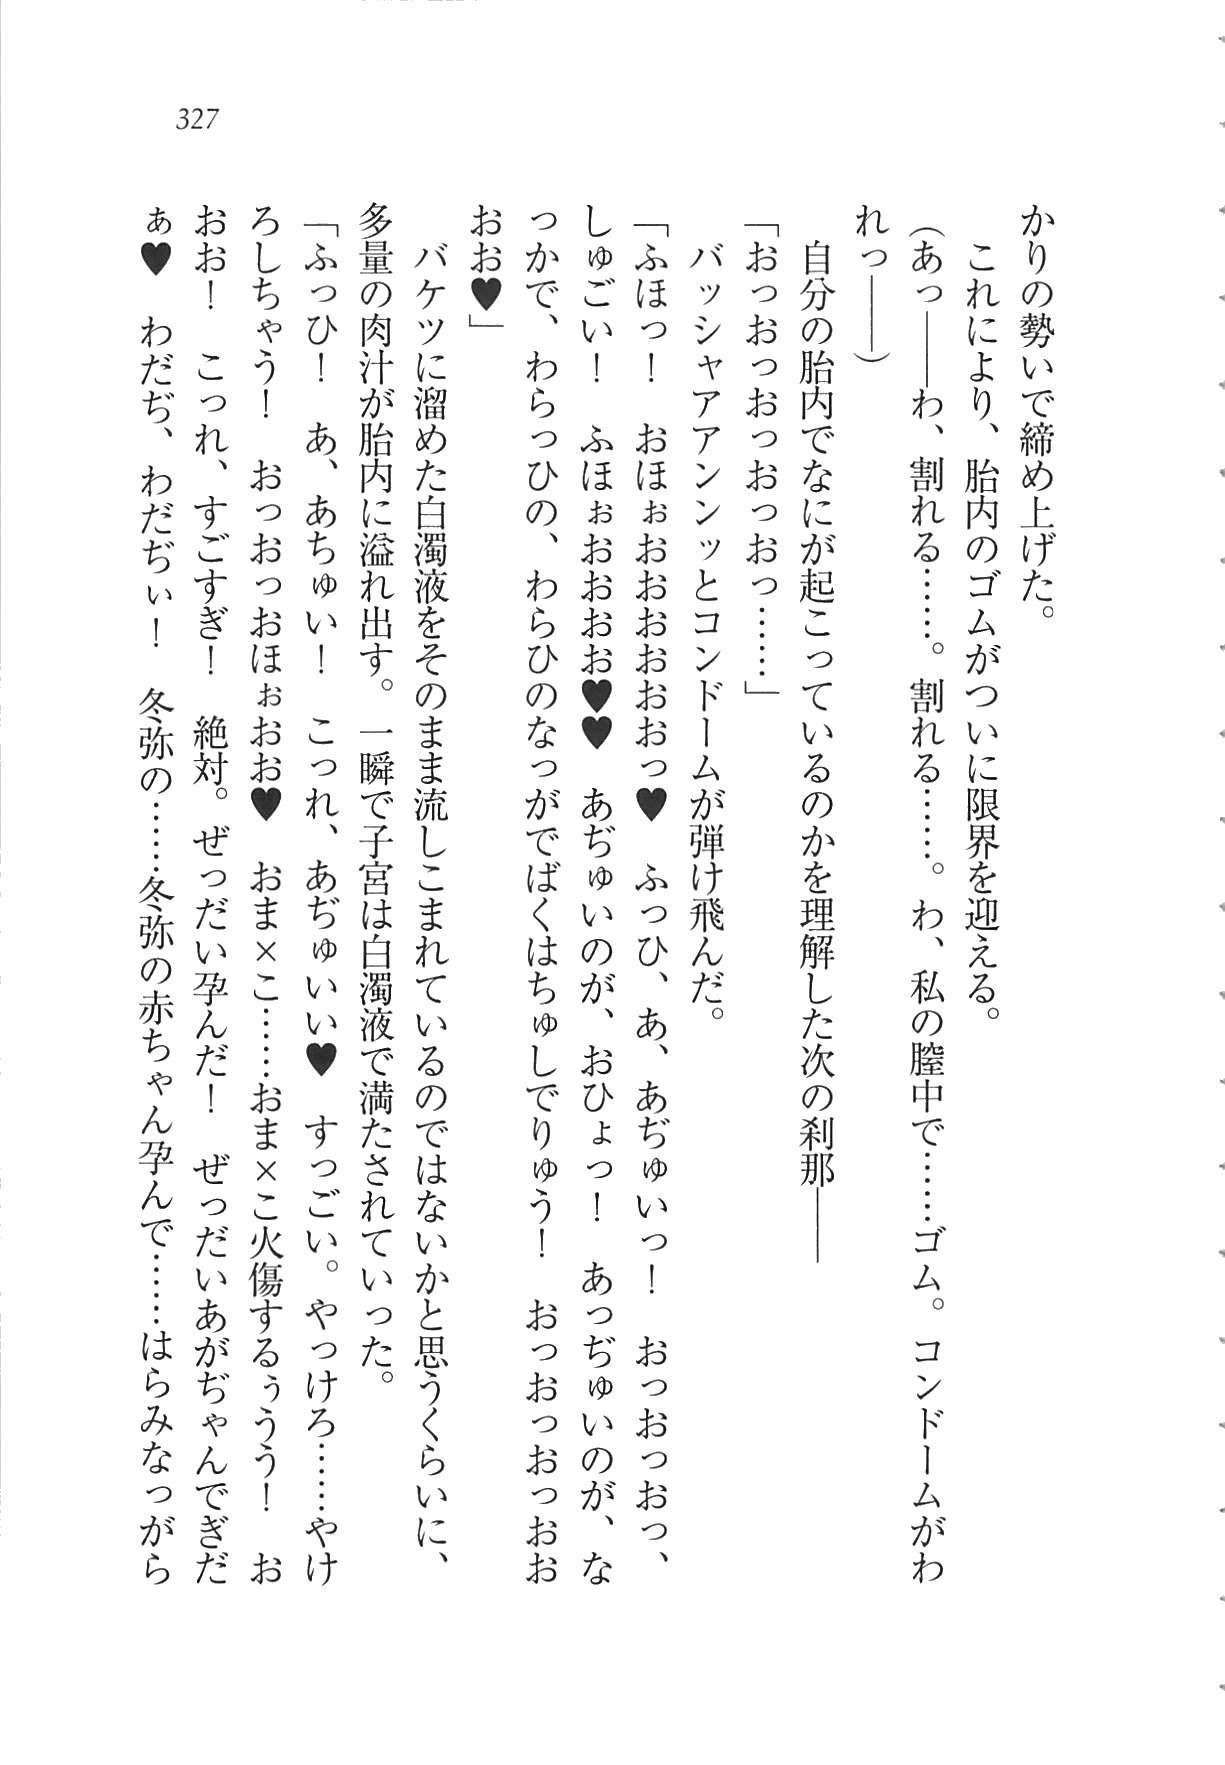 327
かりの勢いで締め上げた。
　これにより、胎内のゴムがついに限界を迎える。
（あっ――わ、割れる……。割れる……。わ、私の膣中で……ゴム。コンドームがわ
れっ――）
　自分の胎内でなにが起こっているのかを理解した次の刹那――
「おっおっおっおっおっ……」
　バッシャアアンンッとコンドームが弾け飛んだ。
「ふほっ！　おほぉおおおおおおっ♥　ふっひ、あ、あぢゅいっ！　おっおっおっ、
しゅごい！　ふほぉおおおお♥♥　あぢゅいのが、おひょっ！　あっぢゅいのが、な
っかで、わらっひの、わらひのなっがでばくはちゅしでりゅう！　おっおっおっおお
おお♥」
　バケツに溜めた白濁液をそのまま流しこまれているのではないかと思うくらいに、
多量の肉汁が胎内に溢れ出す。一瞬で子宮は白濁液で満たされていった。
「ふっひ！　あ、あちゅい！　こっれ、あぢゅいい♥　すっごい。やっけろ……やけ
ろしちゃう！　おっおっおほぉおお♥　おま×こ……おま×こ火傷するぅうう！　お
おお！　こっれ、すごすぎ！　絶対。ぜっだい孕んだ！　ぜっだいあがぢゃんでぎだ
ぁ♥　わだぢ、わだぢぃ！　冬弥の……冬弥の赤ちゃん孕んで……はらみなっがら